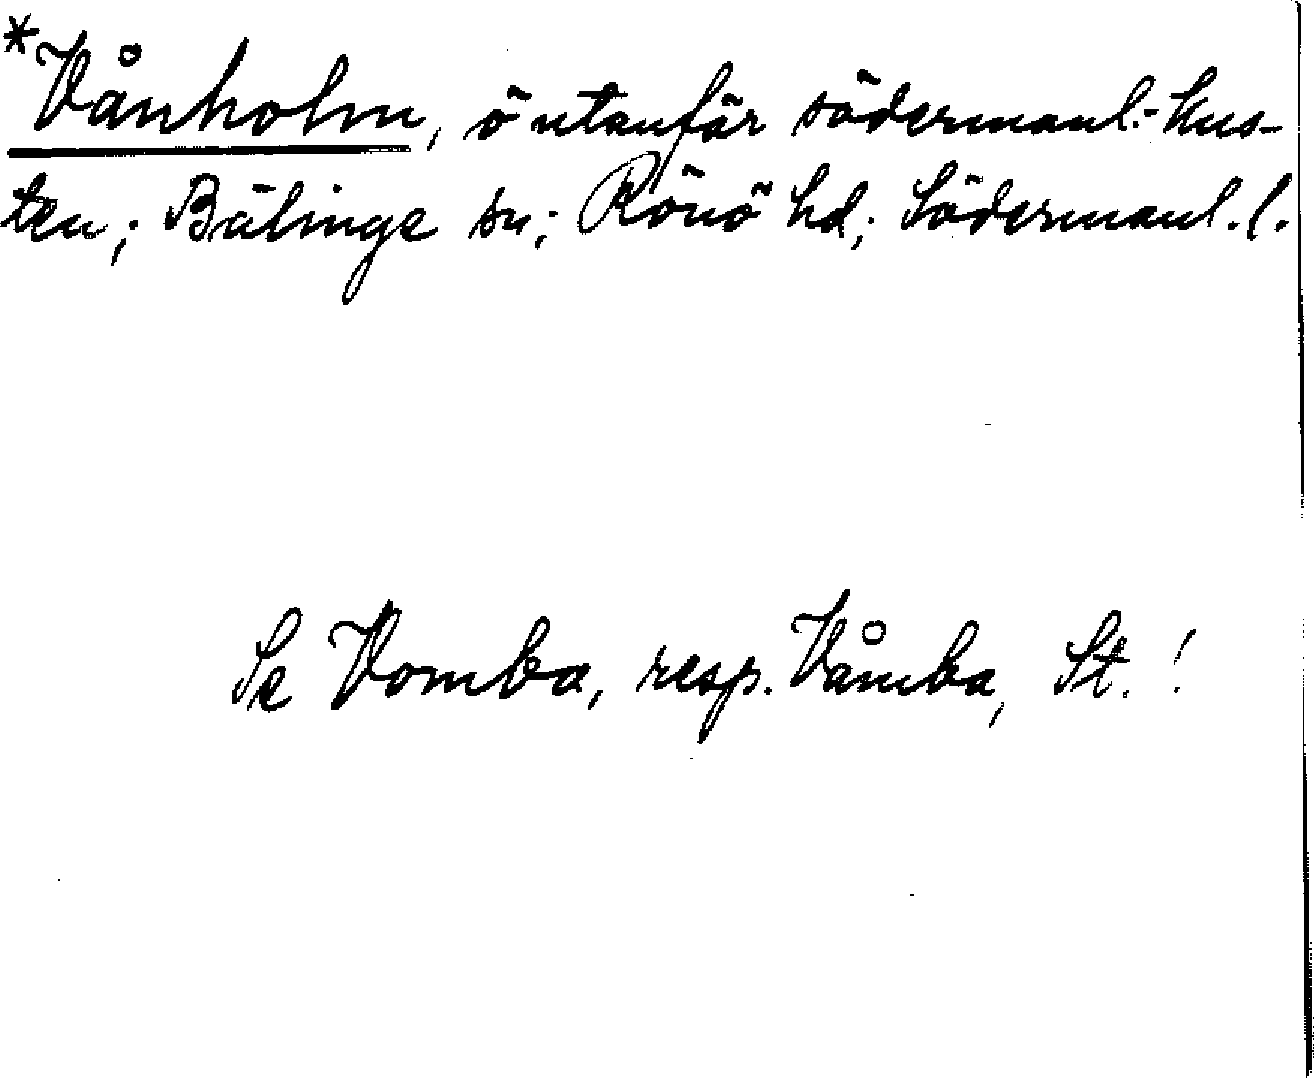 *Vånholm, ö utanför södermanl.-kus-
ten; Bälinge sn; Rönö hd; Södermanl. l.
Se Vomba, resp. Våmba, St. !